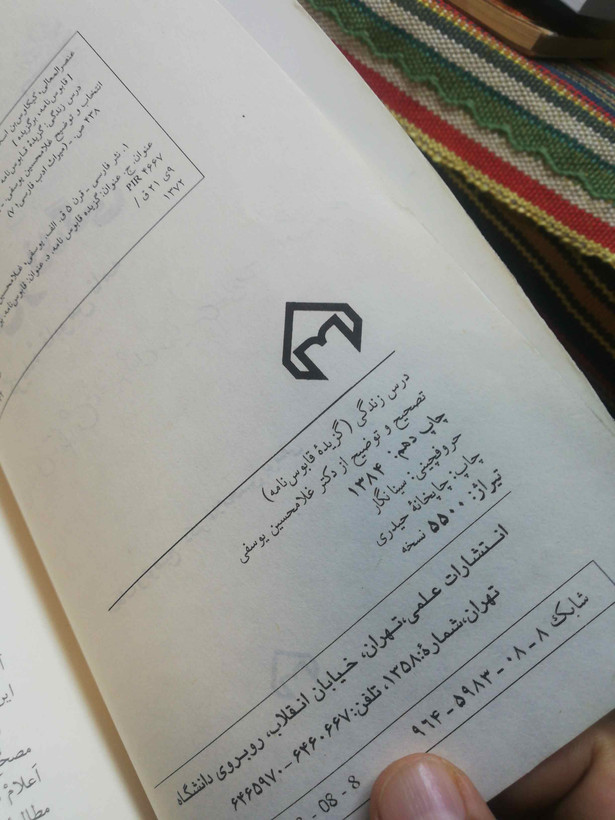 عنصرالمعالی، کیکاوس‌بن
[قابوس‌نامه. برگزیده]
درس زندگی: گزیدهٔ قابوس‌نامه
انتخاب و توضیح غلامحسین یوسفی
۴۳۸ ص. _ (میراث ادب فارسی؛ ۷)
۱. نثر فارسی _ قرن ۵ ق. الف. یوسفی، غلامحسین
عنوان. ج. عنوان: گزیده قابوس نامه. د. عنوان: قابوس‌نامه.
PIR ۴۶۶۷
۱۳۷۲
درس زندگی (گزیدهٔ قابوس‌نامه)
تصحیح و توضیح از دکتر غلامحسین یوسفی
چاپ دهم: ۱۳۸۴
حروفچینی: سینانگار
چاپ: چاپخانهٔ حیدری
تیراژ: ۵۵۰۰ نسخه
انتشارات علمی،تهران، خیابان انقلاب، روبروی دانشگاه
تهران،شماره:۱۳۵۸، تلفن:۶۴۶۰۶۶۷_۶۴۶۵۹۷۰
شابک ۸ _ ۰۸ _ ۵۹۸۳ _ ۹۶۴
- 08 - 8
مصحح
اعلام
مطالب